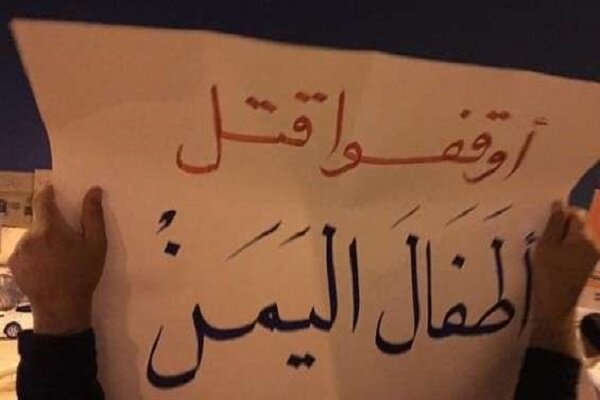 أوقفوا قتل
أطفَالَ اليَمَنُ